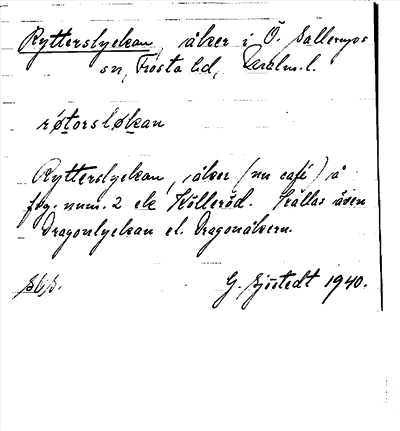 Rytterslyckan, åker i Ö. Sallerups
sn, Frosta hd, Malm. l.
røtorsløkan
Rytterslyckan, åker (nu café) å
fzg. num. 2 ek Källeröd. Kallas även
Dragonlyckan el. Dragonåkern.
G. Sjöstedt 1940.